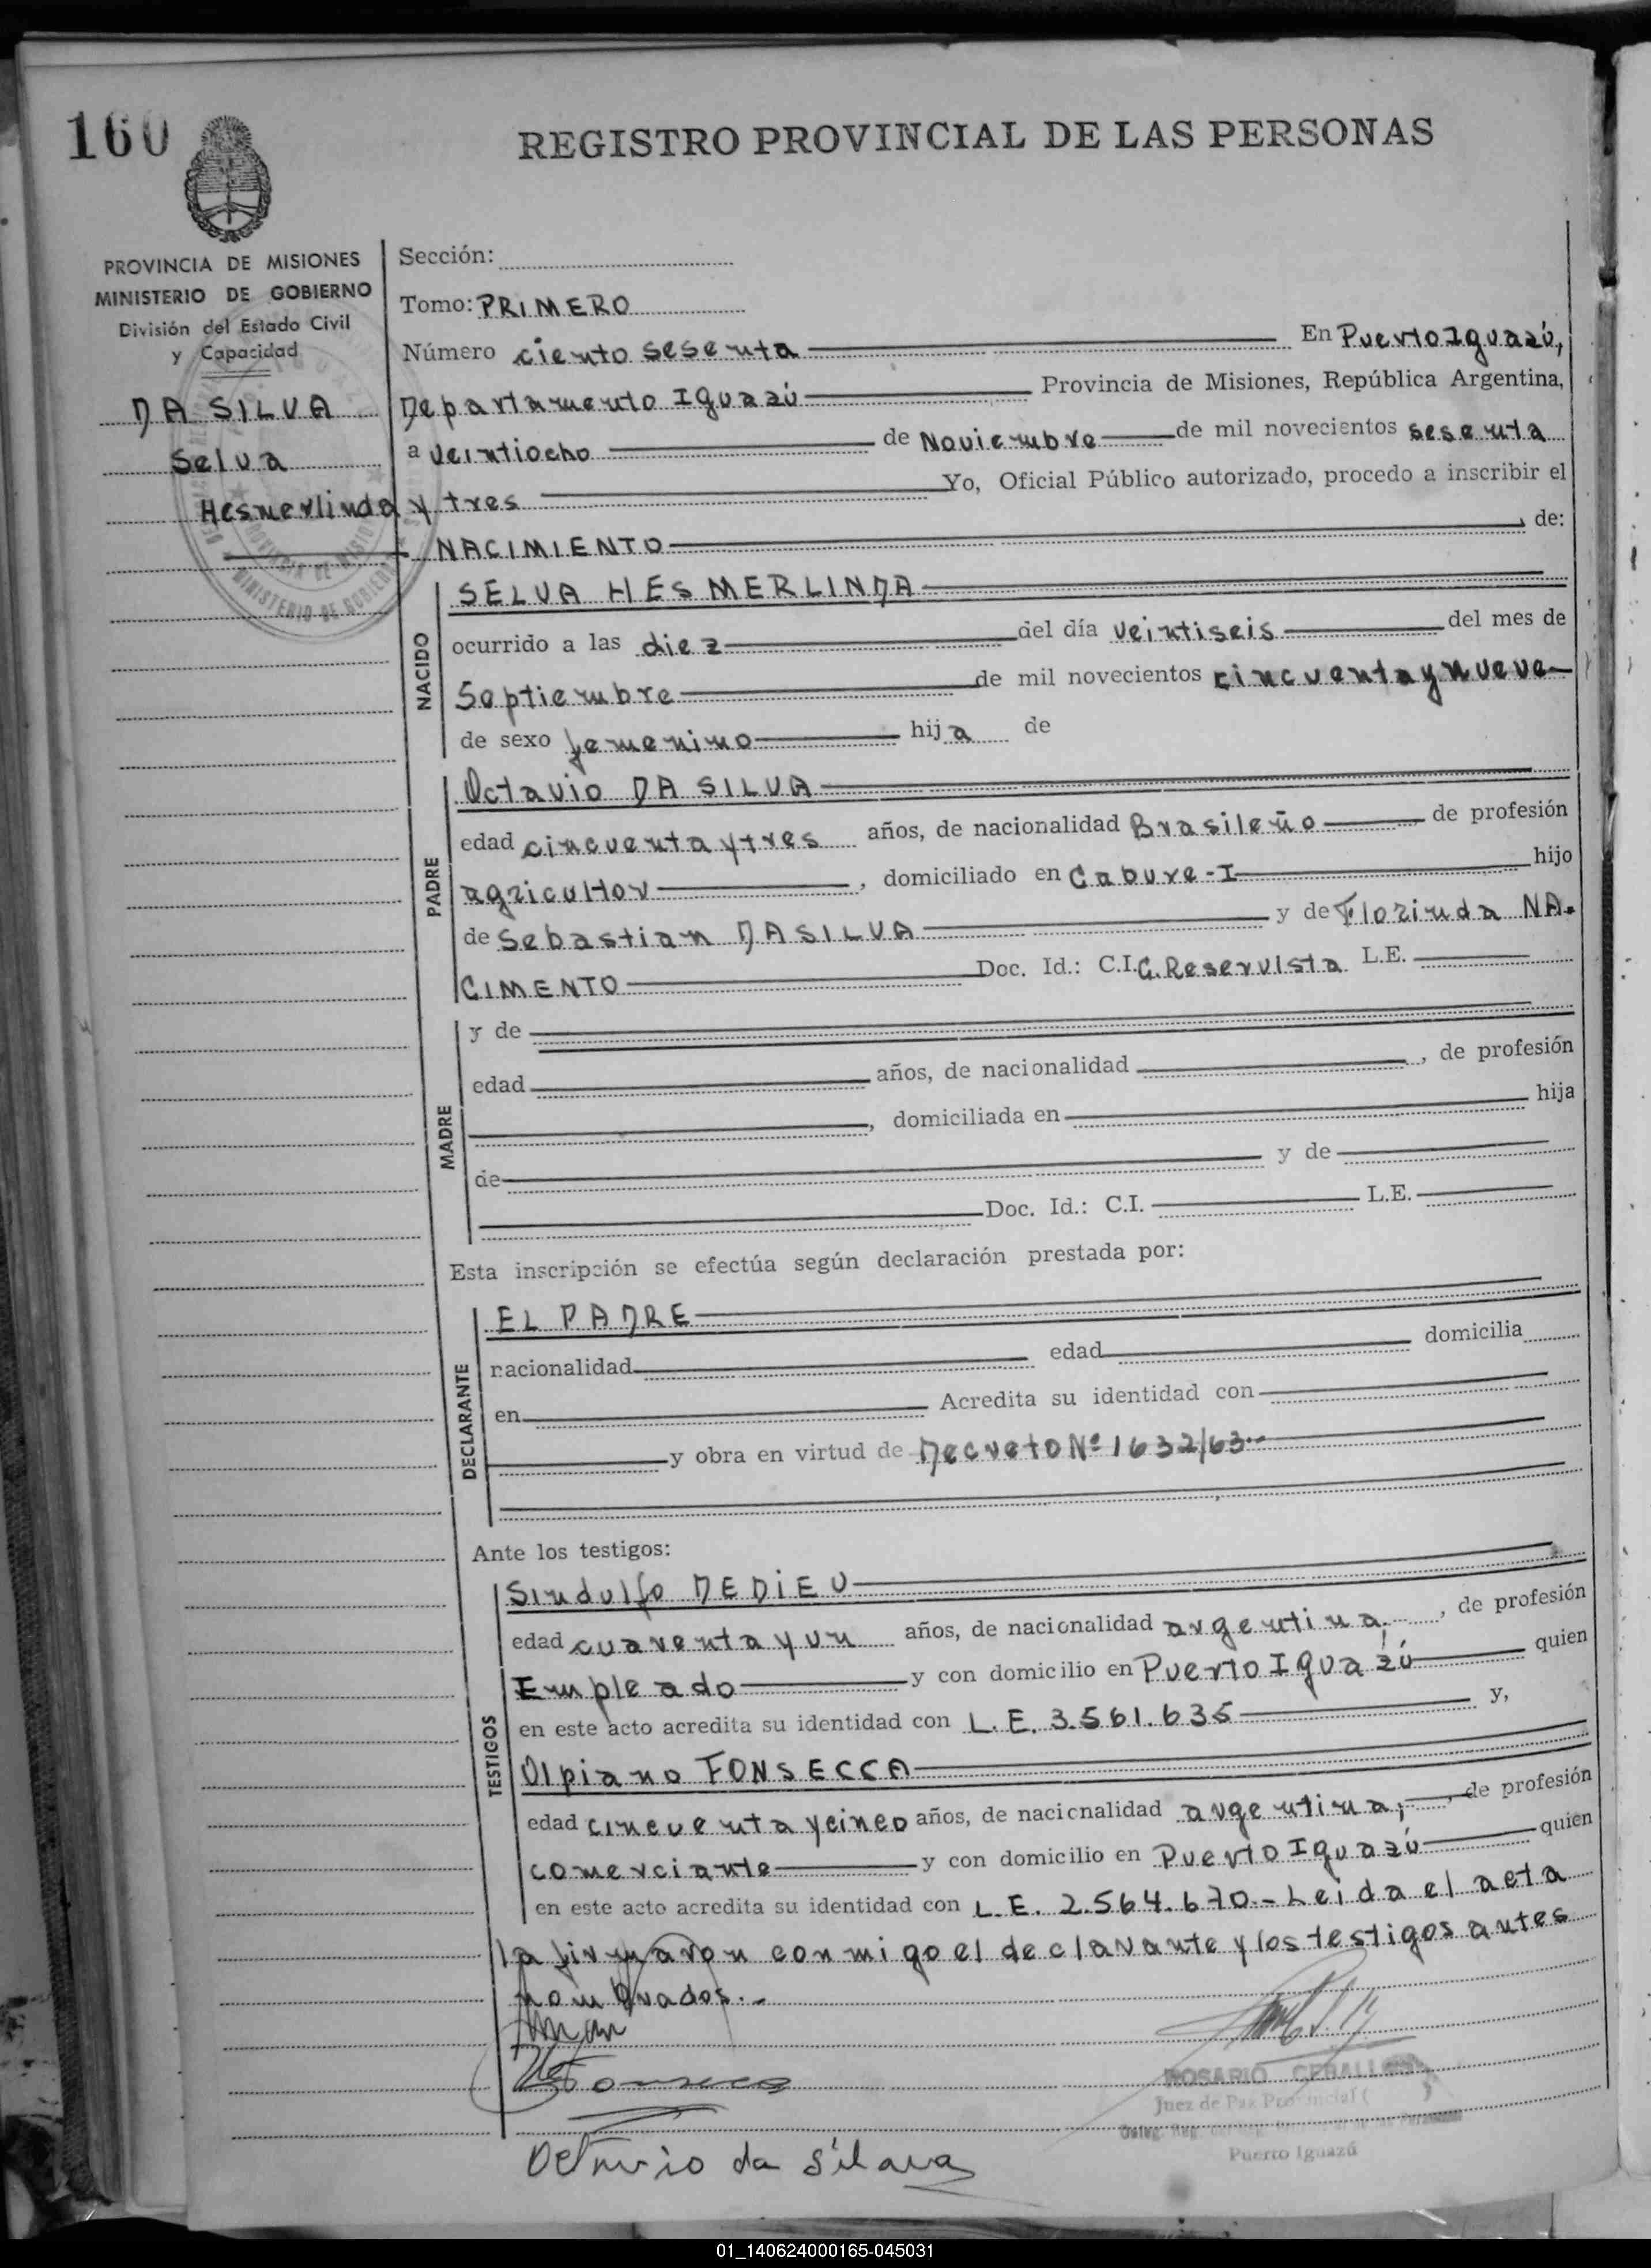 160
REGISTRO PROVINCIAL DE LAS PERSONAS
PROVINCIA DE MISIONES
MINISTERIO DE GOBIERNO
División del Estado Civil
y Capacidad
DA SILVA
Selva
Hesmerlinda
Sección:
Tomo: PRIMERO
Número ciento sesenta En Puerto Iguazú,
Departamento Iguazú Provincia de Misiones, República Argentina,
a veintiocho de Noviembre de mil novecientos sesenta
y tres Yo, Oficial Público autorizado, procedo a inscribir el
NACIMIENTO , de:
NACIDO
SELVA HESMERLINDA
ocurrido a las diez del día veintiseis del mes de
Septiembre de mil novecientos cincuenta y nueve
de sexo femenino hija de
PADRE
Octavio DA SILVA
edad cincuenta y tres años, de nacionalidad Brasileño de profesión
agricultor , domiciliado en Cabure-I hijo
de Sebastian DA SILVA y de Florinda NA-
CIMENTO Doc. Id.: C.I. C. Reservista L.E.
MADRE
y de
edad años, de nacionalidad , de profesión
, domiciliada en hija
de y de
Doc. Id.: C.I. L.E.
Esta inscripción se efectúa según declaración prestada por:
DECLARANTE
EL PADRE
nacionalidad edad domicilia
en Acredita su identidad con
y obra en virtud de Decreto Nº 1632/63.-
Ante los testigos:
TESTIGOS
Sindulfo DEDIEU
edad cuarenta y un años, de nacionalidad argentina, , de profesión
Empleado y con domicilio en Puerto Iguazú quien
en este acto acredita su identidad con L.E. 3.561.635 y,
Olpiano FONSECCA
edad cincuenta y cinco años, de nacionalidad argentina, , de profesión
comerciante y con domicilio en Puerto Iguazú quien
en este acto acredita su identidad con L.E. 2.564.670.- Leida el acta
la firmaron conmigo el declarante y los testigos antes
nombrados.-
ROSARIO CEBALLOS
Juez de Paz Provincial
Puerto Iguazú
Octavio da Silava
01_140624000165-045031